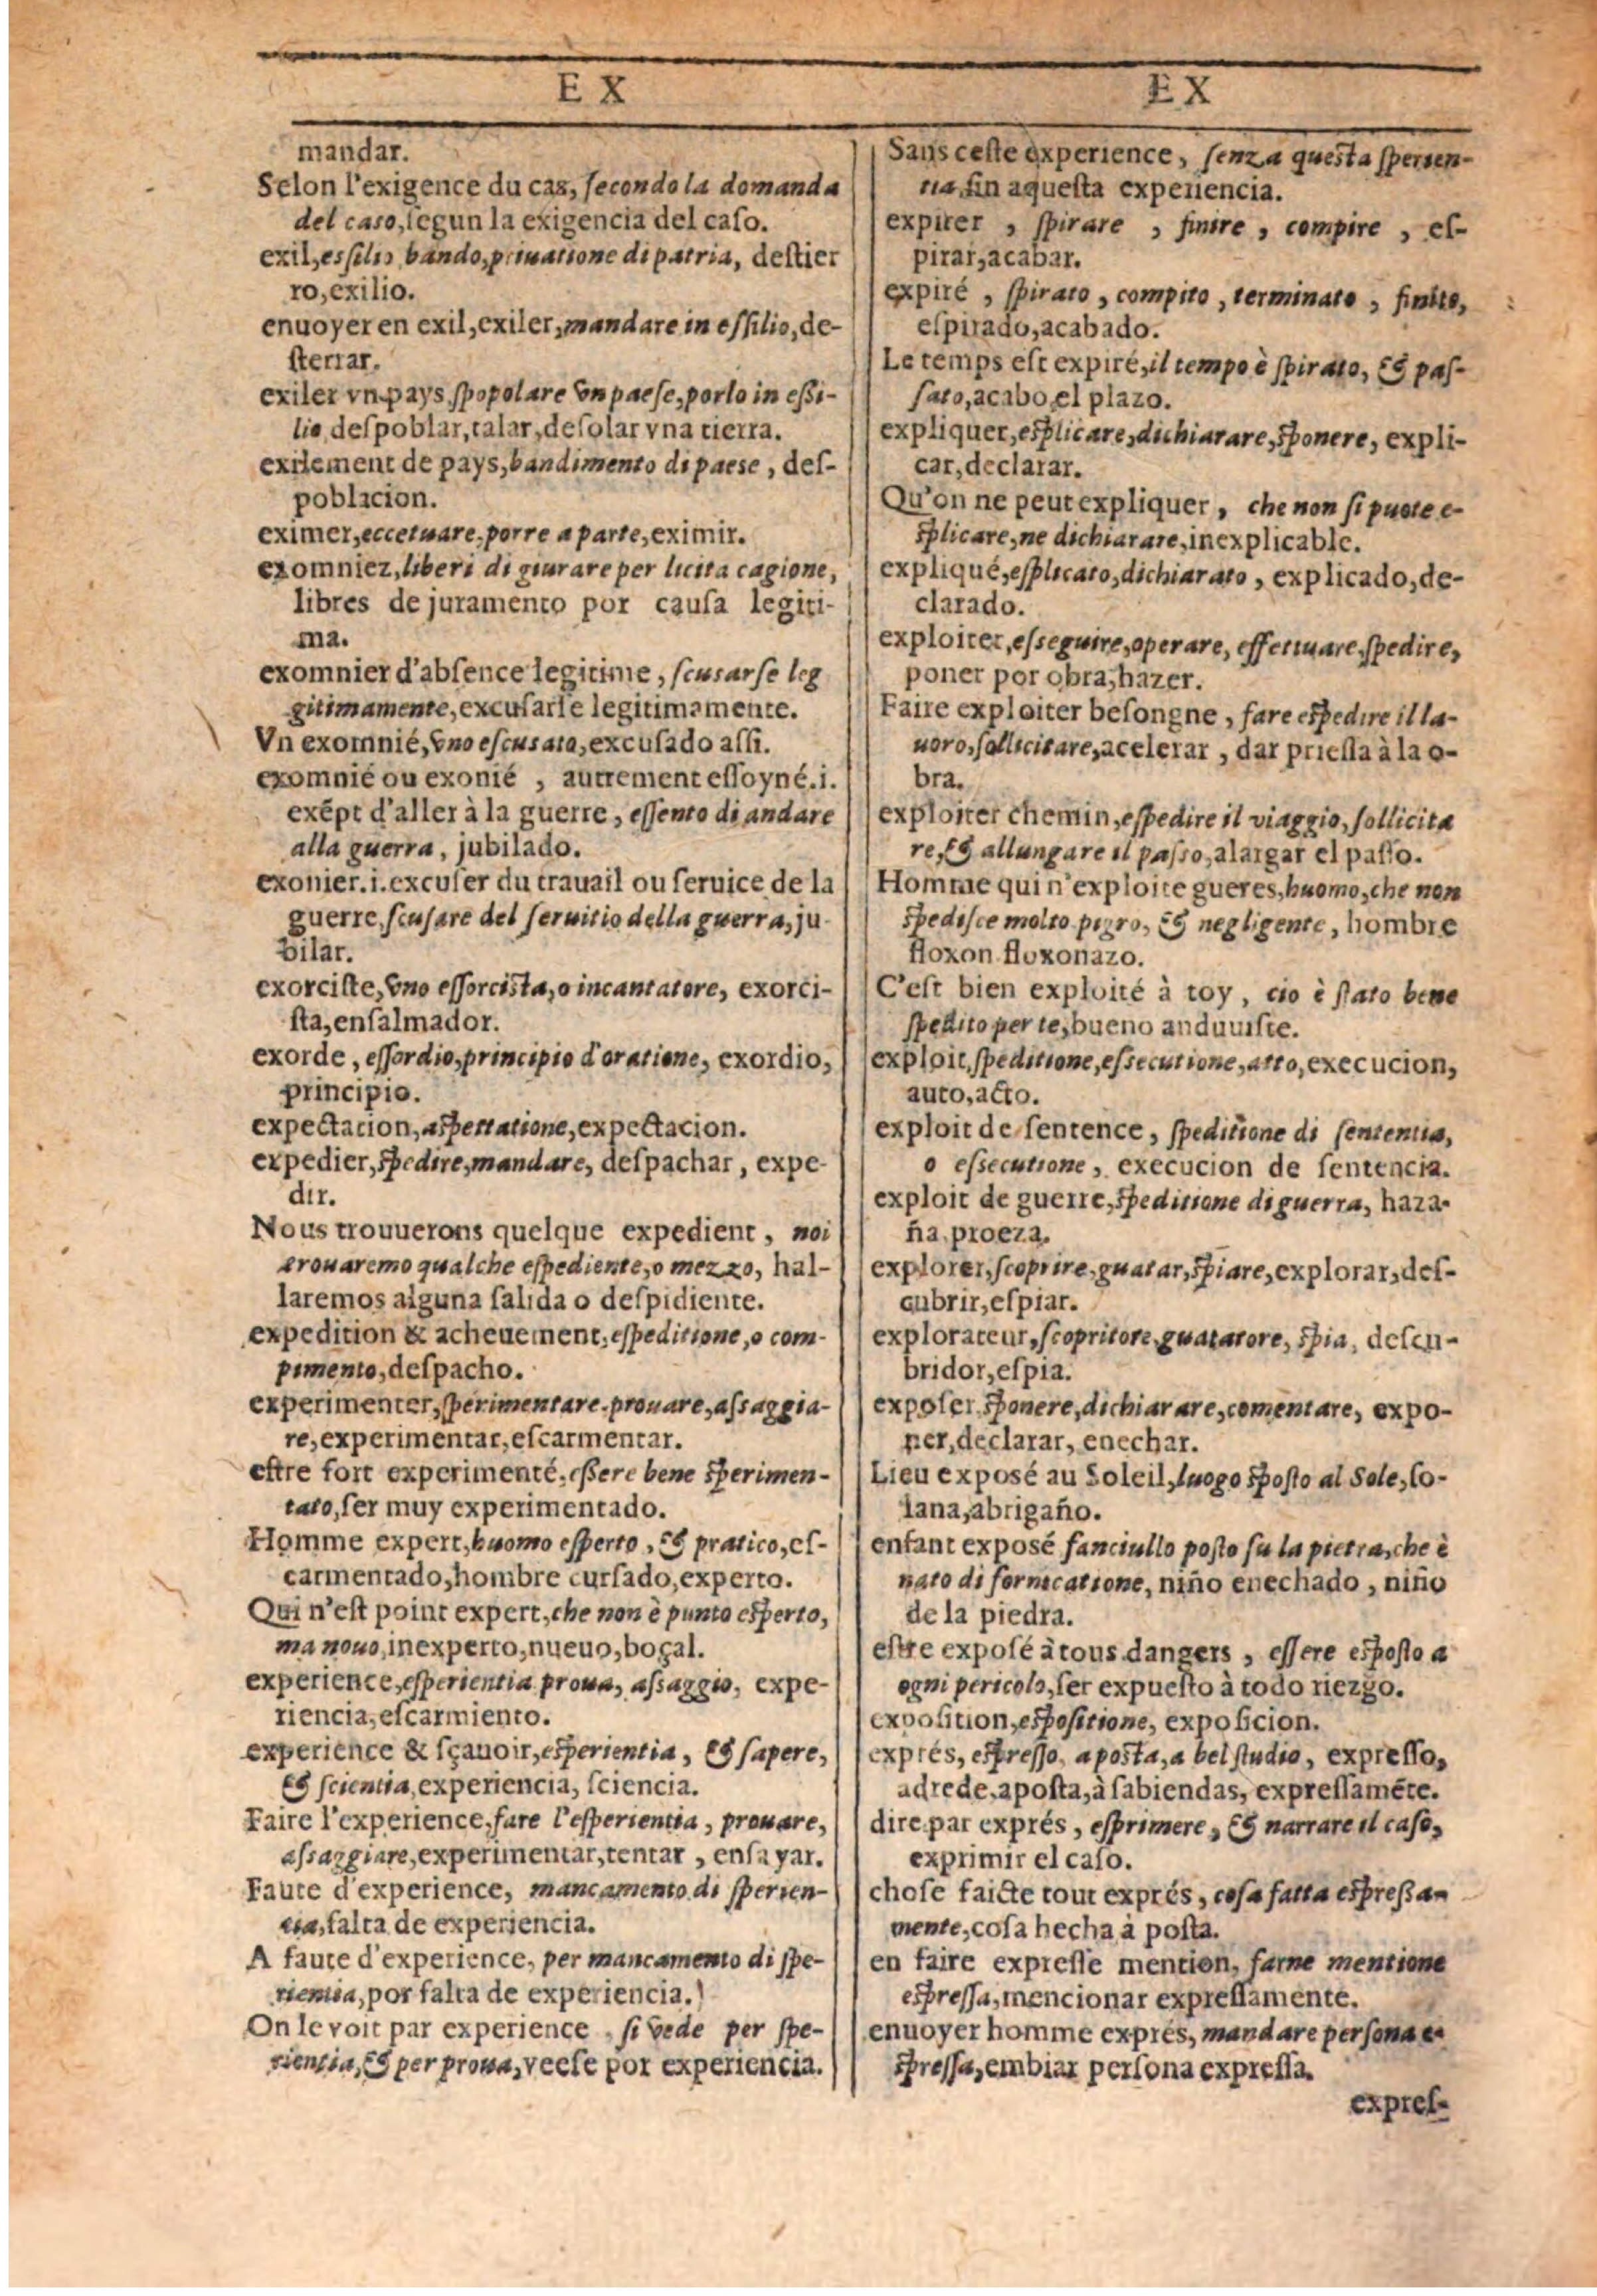 E X
mandar.
Selon l'exigence du cas, ſecondo la domanda
del caso, ſegun la exigencia del caſo.
exil, esſilio, bando, priuatione di patria, deſtier
ro, exilio.
enuoyer en exil, exiler, mandare in eſſilio, de-
ſterrar.
exiler vn pays, ſpopolare vn paeſe, porlo in eſſi-
lio, deſpoblar, talar, deſolar vna tierra.
exilement de pays, bandimento di paese, deſ-
poblacion.
eximer, eccetuare, porre a parte, eximir.
exomniez, liberi di giurare per licita cagione,
libres de juramento por cauſa legiti-
ma.
exomnier d'abſence legitime, ſcusarſe leg
gitimamente, excuſarſe legitimamente.
Vn exomnié, vno eſcusato, excuſado aſſi.
exomnié ou exonié, autrement eſſoyné.i.
exẽpt d'aller à la guerre, eſſento di andare
alla guerra, jubilado.
exonier.i.excuſer du trauail ou ſeruice de la
guerre, ſcuſare del ſeruitio della guerra, ju-
bilar.
exorciſte, vno eſſorciſta, o incantatore, exorci-
ſta, enſalmador.
exorde, eſſordio, principio d'oratione, exordio,
principio.
expectacion, aſpettatione, expectacion.
expedier, ſpedire, mandare, deſpachar, expe-
dir.
Nous trouuerons quelque expedient, noi
trouaremo qualche eſpediente, o mezzo, hal-
laremos alguna ſalida o deſpidiente.
expedition & acheuement, eſpeditione, o com-
pimento, deſpacho.
experimenter, ſperimentare, prouare, aſſaggia-
re, experimentar, eſcarmentar.
eſtre fort experimenté, eſſere bene ſperimen-
tato, ſer muy experimentado.
Homme expert, huomo eſperto, & pratico, eſ-
carmentado, hombre curſado, experto.
Qui n'eſt point expert, che non è punto eſperto,
ma nouo, inexperto, nueuo, boçal.
experience, eſperientia proua, aſſaggio, expe-
riencia, eſcarmiento.
experience & ſçauoir, eſperientia, & ſapere,
& ſcientia, experiencia, ſciencia.
Faire l'experience, fare l'eſperientia, prouare,
aſſaggiare, experimentar, tentar, enſayar.
Faute d'experience, mancamento di ſperien-
tia, falta de experiencia.
A faute d'experience, per mancamento di ſpe-
rientia, por falta de experiencia.)
On le voit par experience, ſi vede per ſpe-
rientia, & per proua, veeſe por experiencia.
E X
Sans ceſte experience, ſenza queſta ſperien-
tia, ſin aqueſta experiencia.
expirer, ſpirare, finire, compire, eſ-
pirar, acabar.
expiré, ſpirato, compito, terminato, finito,
eſpirado, acabado.
Le temps eſt expiré, il tempo è ſpirato, & paſ-
ſato, acabo el plazo.
expliquer, eſplicare, dichiarare, ſponere, expli-
car, declarar.
Qu'on ne peut expliquer, che non ſi puote e-
ſplicare, ne dichiarare, inexplicable.
expliqué, eſplicato, dichiarato, explicado, de-
clarado.
exploiter, eſſeguire, operare, effettuare, ſpedire,
poner por obra, hazer.
Faire exploiter beſongne, fare eſpedire il la-
uoro, ſollicitare, acelerar, dar prieſſa à la o-
bra.
exploiter chemin, eſpedire il viaggio, ſollicita
re, & allungare il paſſo, alargar el paſſo.
Homme qui n'exploite gueres, huomo, che non
ſpediſce molto pigro, & negligente, hombre
floxon floxonazo.
C'eſt bien exploité à toy, cio è ſtato bene
ſpedito per te, bueno anduuiſte.
exploit, ſpeditione, eſſecutione, atto, execucion,
auto, acto.
exploit de ſentence, ſpeditione di ſententia,
o eſſecutione, execucion de ſentencia.
exploit de guerre, ſpeditione di guerra, haza-
ña, proeza.
explorer, ſcoprire, guatar, ſpiare, explorar, deſ-
cubrir, eſpiar.
explorateur, ſcopritore, guatatore, ſpia, deſcu-
bridor, eſpia.
expoſer, ſponere, dichiarare, comentare, expo-
ner, declarar, enechar.
Lieu expoſé au Soleil, luogo ſpoſto al Sole, ſo-
lana, abrigaño.
enfant expoſé fanciullo poſto ſu la pietra, che è
nato di fornicatione, niño enechado, niño
de la piedra.
eſtre expoſé à tous dangers, eſſere eſpoſto a
ogni pericolo, ſer expueſto à todo riezgo.
expoſition, eſpoſitione, expoſicion.
exprés, eſpreſſo, a poſta, a bel ſtudio, expreſſo,
adrede, apoſta, à ſabiendas, expreſſamẽte.
dire par exprés, eſprimere, & narrare il caſo,
exprimir el caſo.
choſe faicte tout exprés, coſa fatta eſpreſſa-
mente, coſa hecha à poſta.
en faire expreſſe mention, farne mentione
eſpreſſa, mencionar expreſſamente.
enuoyer homme exprés, mandare perſona e-
ſpreſſa, embiar perſona expreſſa.
expreſ-